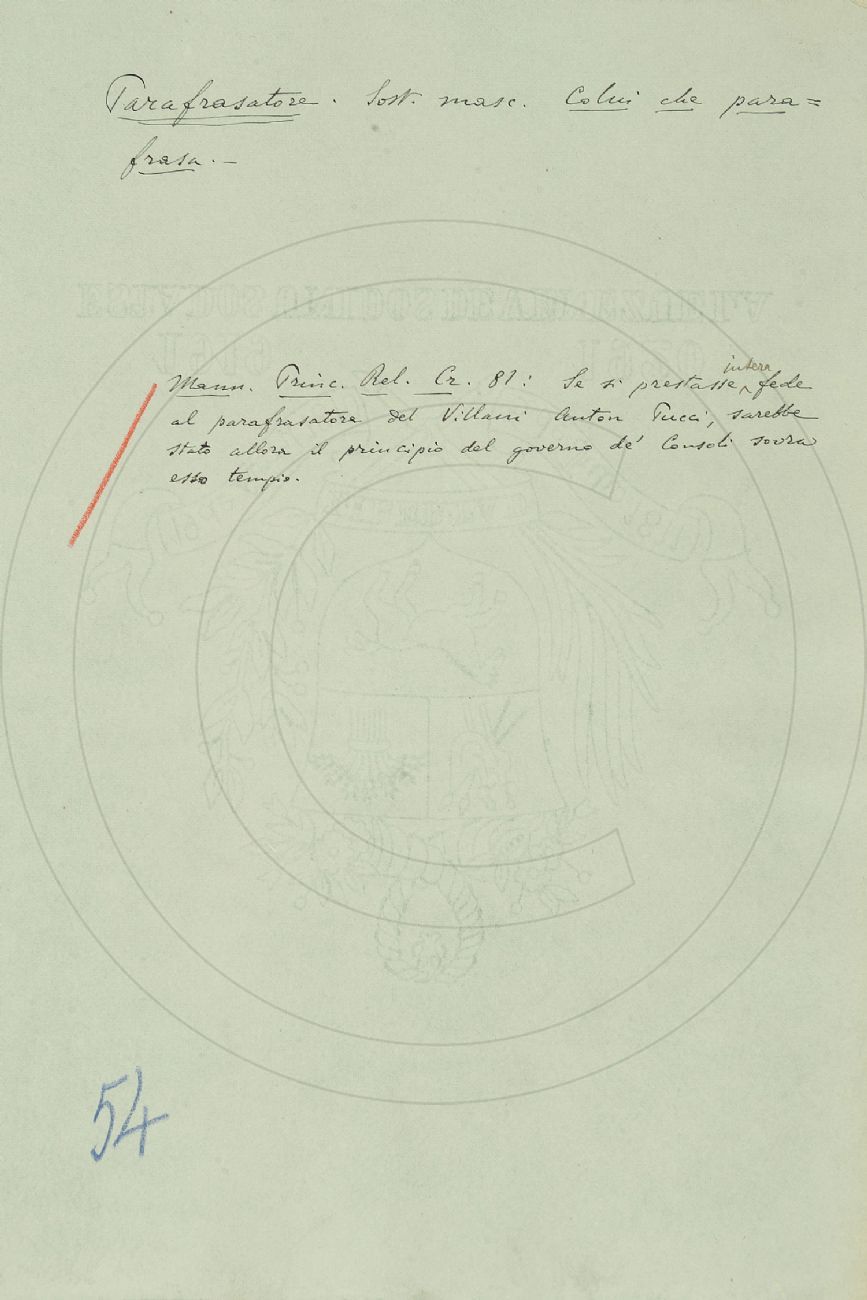 Parafrasatore. Sost. masc. Colui che para=
frasa. –
Mann. Princ. Rel. Cr. 81: Se si prestasse intera fede
al parafrasatore del Villani Anton Pucci, sarebbe
stato allora il principio del governo de' Consoli sovra
esso tempio.
54